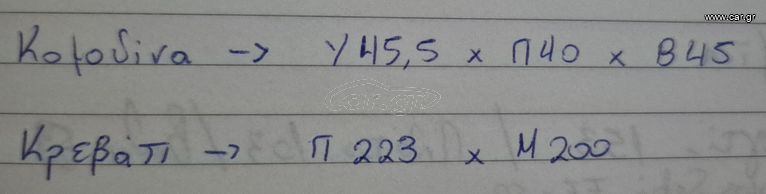 www.car.gr
Κομοδίνα → Υ45,5 x Π40 x Β45
car.gr
Κρεβάτι → Π 223 x Μ 200